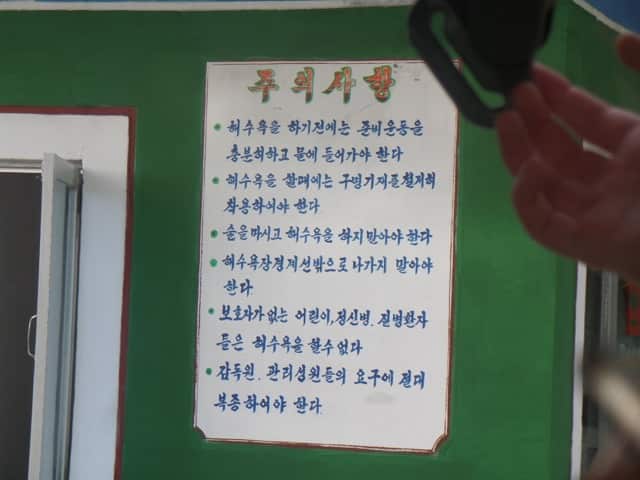 주의사항
해수욕을 하기전에는 준비운동을
충분히하고 물에 들어가야 한다
해수욕을 할때에는 구명기재를철저히
착용하여야 한다
술을마시고 해수욕을 하지말아야 한다
해수욕장경계선밖으로 나가지 말아야
한다
보호자가없는 어린이,정신병. 질병환자
들은 해수욕을 할수없다
감독원. 관리성원들의 요구에 절대
복종하여야 한다.